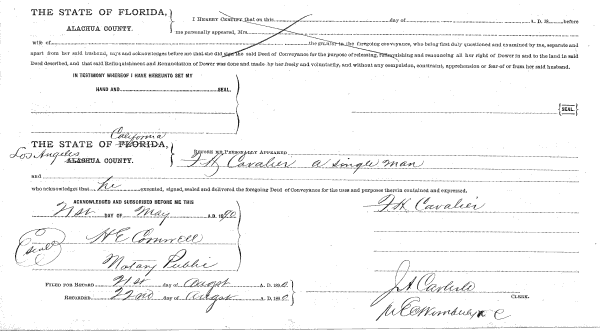 THE STATE OF FLORIDA,
ALACHUA COUNTY.
I HEREBY CERTIFY that on this day of A. D. 18 before
me personally appeared, Mrs.
wife of the grantor in the foregoing conveyance, who being first duly questioned and examined by me, separate and
apart from her said husband, says and acknowledges before me that she did sign the said Deed of Conveyance for the purpose of releasing, relinquishing and renouncing all her right of Dower in and to the land in said
Deed described, and that said Relinquishment and Renunciation of Dower was done and made by her freely and voluntarily, and without any compulsion, constraint, apprehension or fear of or from her said husband.
IN TESTIMONY WHEREOF I HAVE HEREUNTO SET MY
HAND AND SEAL.
SEAL.
California
THE STATE OF FLORIDA,
Los Angeles ALACHUA COUNTY.
BEFORE ME PERSONALLY APPEARED
F H Cavalier a single man
and
who acknowledges that he executed, signed, sealed and delivered the foregoing Deed of Conveyance for the uses and purposes therein contained and expressed.
ACKNOWLEDGED AND SUBSCRIBED BEFORE ME THIS
21st DAY OF May A.D. 1890
F H Cavalier
Seal
H E Cornwell
Notary Public
FILED FOR RECORD 21st day of August A. D. 1890
RECORDED 22nd day of August A.D. 1890
J A Carlisle
CLERK.